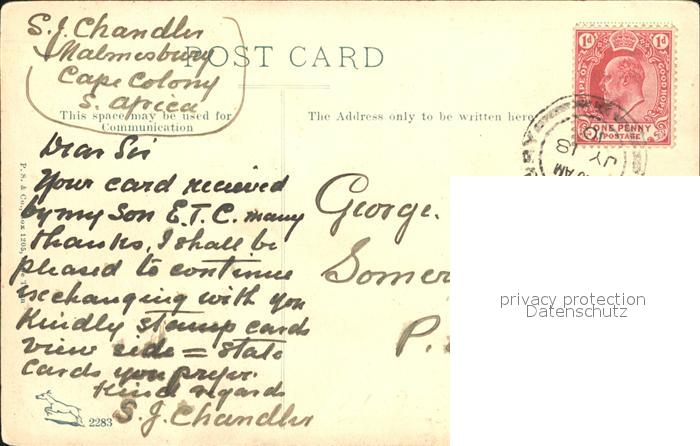 S. J. Chandler
Malmesbury
Cape Colony
S. Africa
POST CARD
This space may be used for
Communication
The Address only to be written here
1d 1d
CAPE OF GOOD HOPE
ONE PENNY
POSTAGE
JY 18
AM
Dear Sir
Your card recieved
by my Son E.T.C. many
thanks, I shall be
pleased to continue
exchanging with you
Kindly stamp cards
view side = State
cards you prefer.
Kind regards
S. J. Chandler
George.
Somer
P.
P. S. & Co., Box 1205,
2283
privacy protection
Datenschutz